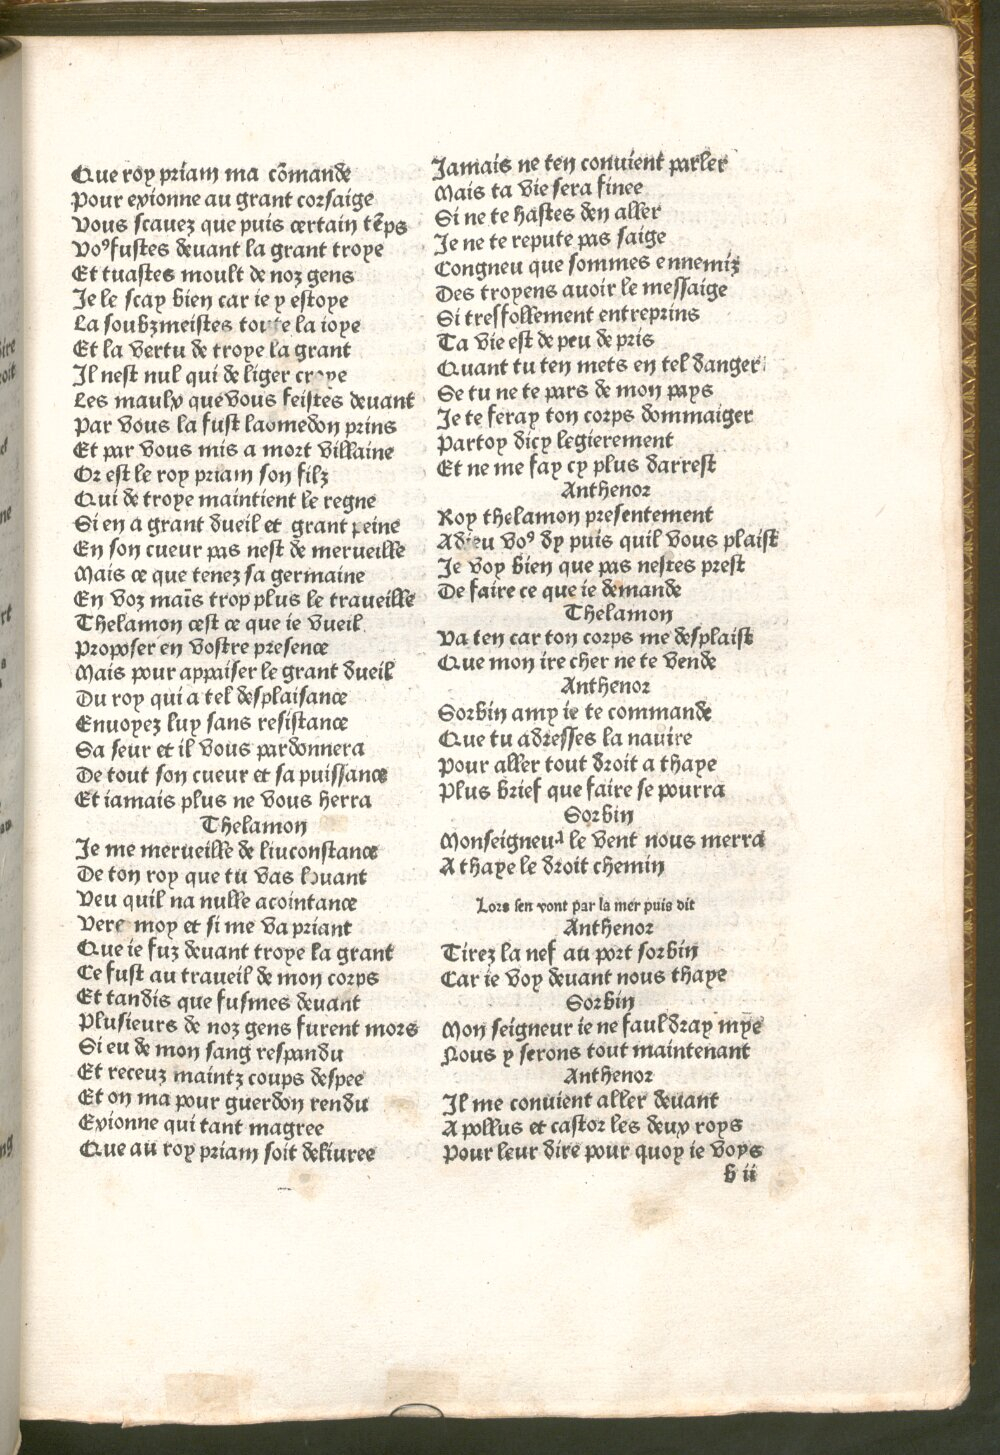 Que roy priam ma cõmande
Pour exionne au grant corsaige
Vous scauez que puis certain tẽps
Voꝰ fustes deuant la grant troye
Et tuastes moult de noz gens
Je le scay bien car ie y estoye
La soubzmeistes toute la ioye
Et la vertu de troye la grant
Il nest nul qui de liger croye
Les maulx que vous feistes deuant
Par vous la fust laomedon prins
Et par vous mis a mort villaine
Or est le roy priam son filz
Qui de troye maintient le regne
Si en a grant dueil et grant peine
En son cueur pas nest de merueille
Mais ce que tenez sa germaine
En voz maĩs trop plus le traueille
Thelamon cest ce que ie vueil
Proposer en vostre presence
Mais pour appaiser le grant dueil
Du roy qui a tel desplaisance
Enuoyez luy sans resistance
Sa seur et il vous pardonnera
De tout son cueur et sa puissance
Et iamais plus ne vous herra
Thelamon
Je me merueille de liuconstance
De ton roy que tu vas louant
Veu quil na nulle acointance
Vere moy et si me va priant
Que ie fuz deuant troye la grant
Ce fust au traueil de mon corps
Et tandis que fusmes deuant
Plusieurs de noz gens furent mors
Si eu de mon sang respandu
Et receuz maintz coups despee
Et on ma pour guerdon rendu
Exionne qui tant magree
Que au roy priam soit deliuree
Jamais ne ten conuient parler
Mais ta vie sera finee
Si ne te hastes den aller
Je ne te repute pas saige
Congneu que sommes ennemiz
Des troyens auoir le messaige
Si tresfollement entreprins
Ta vie est de peu de pris
Quant tu ten mets en tel danger
Se tu ne te pars de mon pays
Je te feray ton corps dommaiger
Partoy dicy legierement
Et ne me fay cy plus darrest
Anthenor
Roy thelamon presentement
Adieu voꝰ dy puis quil vous plaist
Je voy bien que pas nestes prest
De faire ce que ie demande
Thelamon
Va ten car ton corps me desplaist
Que mon ire cher ne te vende
Anthenor
Sorbin amy ie te commande
Que tu adresses la nauire
Pour aller tout droit a thaye
Plus brief que faire se pourra
Sorbin
Monseigneur le vent nous merra
A thaye le droit chemin
Lors sen vont par la mer puis dit
Anthenor
Tirez la nef au port sorbin
Car ie voy deuant nous thaye
Sorbin
Mon seigneur ie ne fauldray mye
Nous y serons tout maintenant
Anthenor
Il me conuient aller deuant
A pollus et castor les deux roys
Pour leur dire pour quoy ie voys
b ii